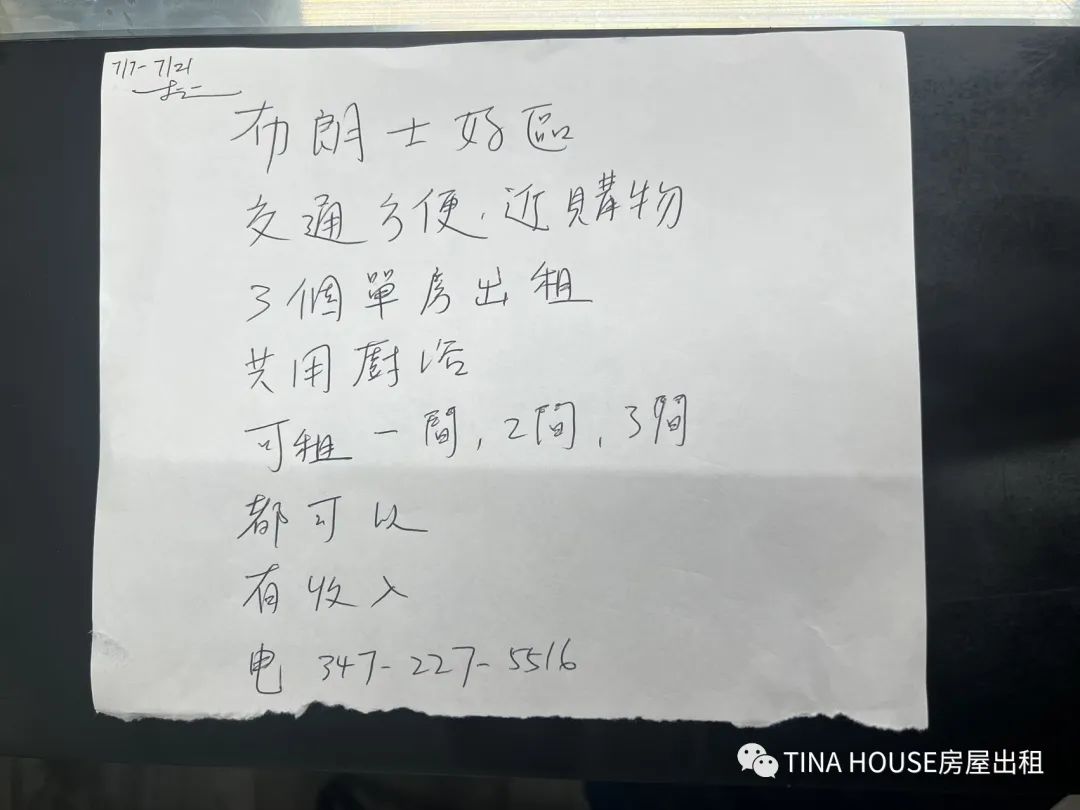 7/7-7/21
布朗士好區
交通方便，近購物
3個單房出租
共用廚浴
可租一間，2間，3間
都可以
有收入
电 347-227-5516
TINA HOUSE房屋出租